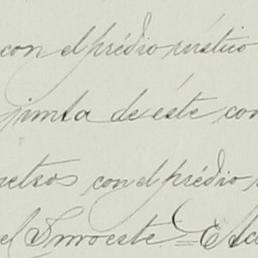 con el prédio rústico
junta de éste con
metros con el prédio
el Smoeste = Ad